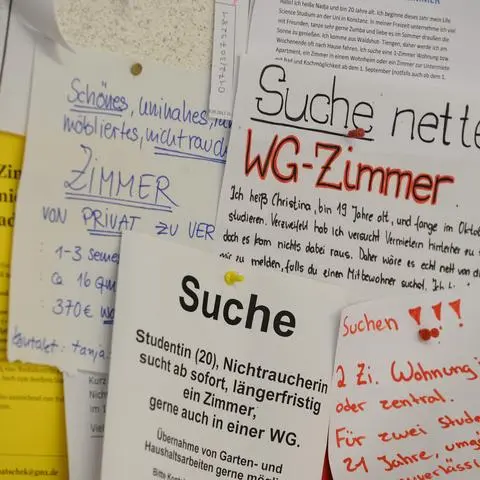 Hallo! Ich heiße Nadja und bin 20 Jahre alt. Ich beginne dieses Jahr mein Life
Science Studium an der Uni in Konstanz. In meiner Freizeit unternehme ich viel
mit Freunden, tanze sehr gerne Zumba und liebe es im Sommer draußen die
Sonne zu genießen. Ich komme aus Waldshut-Tiengen, daher werde ich am
Wochenende oft nach Hause fahren. Ich suche eine 1-Zimmer Wohnung bzw
Apartment, ein Zimmer in einem Wohnheim oder ein Zimmer zur Untermiete
und Kochmöglichkeit ab dem 1. September (notfalls auch ab dem 1.
Schönes, uninahes,
möbliertes, nichtrauch
ZIMMER
VON PRIVAT ZU VER
1-3 Seme
ca 16 qm
370€
Kontakt: tanja
Suche nette
WG-Zimmer
Ich heiß Christina, bin 19 Jahre alt, und fange im Oktob
studieren. Verzweifelt hab ich versucht Vermietern hinterher zu
doch es kam nichts dabei raus. Daher wäre es echt nett von
mir zu melden, falls du einen Mitbewohner suchst. Ich
Suche
Studentin (20), Nichtraucherin
sucht ab sofort, längerfristig
ein Zimmer,
gerne auch in einer WG.
Übernahme von Garten- und
Haushaltsarbeiten gerne mögli
Bitte Kont
Suchen !!!
2 Zi. Wohnung
oder zentral.
Für zwei Stude
21 Jahre, umg
uverlässi
Kurz
im 1
Viel
atschek@gmx.de